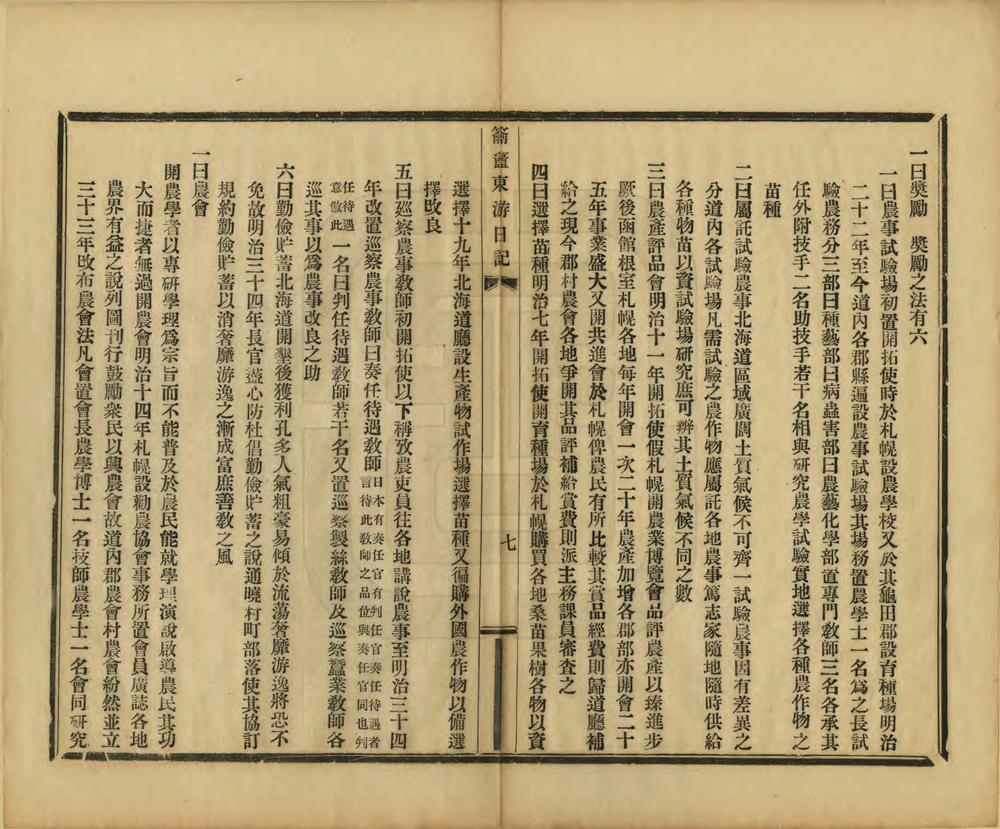 一曰奬勵　奬勵之法有六
一曰農事試驗場初置開拓使時於札幌設農學校又於其龜田郡設育種場明治
二十二年至今道內各郡縣遍設農事試驗場其場務置農學士一名爲之長試
驗農務分三部曰種藝部曰病蟲害部曰農藝化學部置專門教師三名各承其
任外附技手二名助技手若干名相與研究農學試驗實地選擇各種農作物之
苗種
二曰屬託試驗農事北海道區域廣闊土質氣候不可齊一試驗農事因有差異之
分道內各試驗場凡需試驗之農作物應屬託各地農事篤志家隨地隨時供給
各種物苗以資試驗場研究庶可辨其土質氣候不同之數
三曰農產評品會明治十一年開拓使假札幌開農業博覽會品評農產以臻進步
厥後函館根室札幌各地每年開會一次二十年農產加增各郡部亦開會二十
五年事業盛大又開共進會於札幌俾農民有所比較其賞品經費則歸道廳補
給之現今郡村農會各地爭開其品評補給賞費則派主務課員審查之
四曰選擇苗種明治七年開拓使開育種場於札幌購買各地桑苗果樹各物以資
籥盦東游日記
七
選擇十九年北海道廳設生產物試作場選擇苗種又徧購外國農作物以備選
擇改良
五曰廵察農事教師初開拓使以下稱攷農吏員往各地講說農事至明治三十四
年改置巡察農事教師曰奏任待遇教師日本有奏任官有判任官奏任待遇者言待此教師之品位與奏任官同也判
任待遇意倣此一名曰判任待遇教師若干名又置巡察製絲教師及巡察蠶業教師各
巡其事以爲農事改良之助
六曰勤儉貯蓄北海道開墾後獲利孔多人氣粗豪易傾於流蕩奢靡游逸將恐不
免故明治三十四年長官盡心防杜倡勤儉貯蓄之說通曉村町部落使其協訂
規約勤儉貯蓄以消奢靡游逸之漸成富庶善教之風
一曰農會
開農學者以專研學理爲宗旨而不能普及於農民能就學理演說啟導農民其功
大而捷者無過開農會明治十四年札幌設勸農協會事務所置會員廣誌各地
農界有益之說列圖刊行鼓勵衆民以興農會故道內郡農會村農會紛然並立
三十三年改布農會法凡會置會長農學博士一名技師農學士一名會同研究